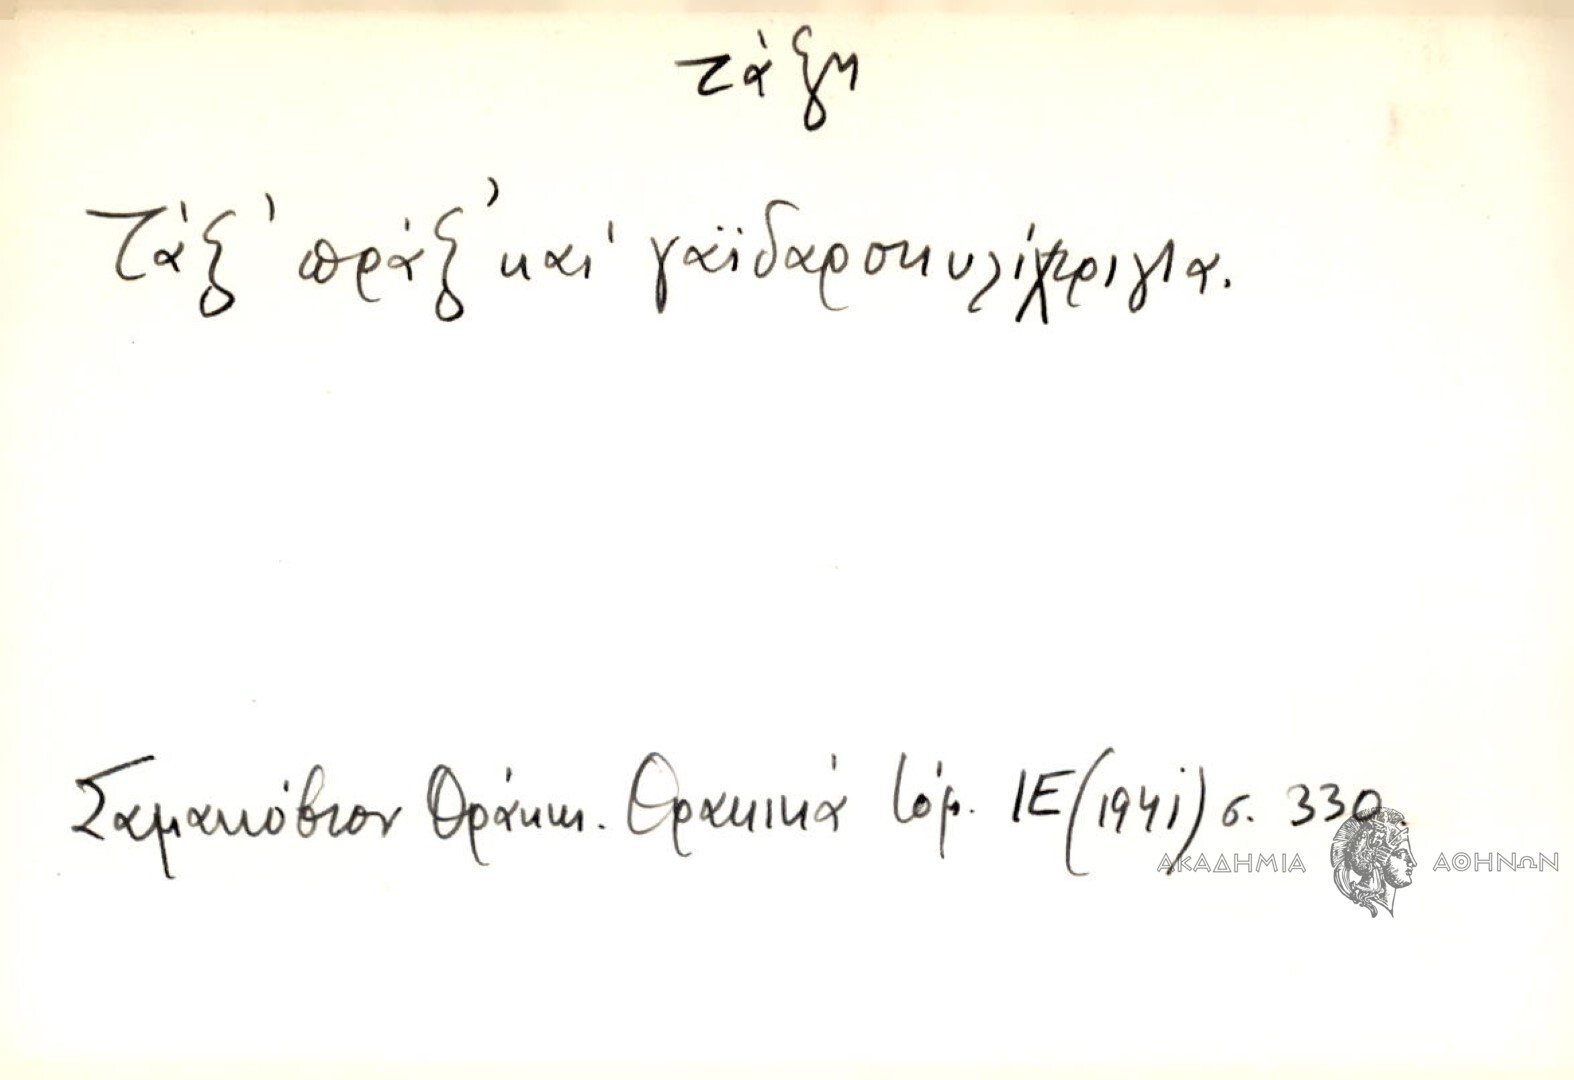 τάξη
Τάξ' πράξ' καὶ γαϊδαροκυλίστριγια.
Σαμακόβιον Θράκης. Θρακικά τόμ. ΙΕ (1941) σ. 330.
ΑΚΑΔΗΜΙΑ ΑΘΗΝΩΝ